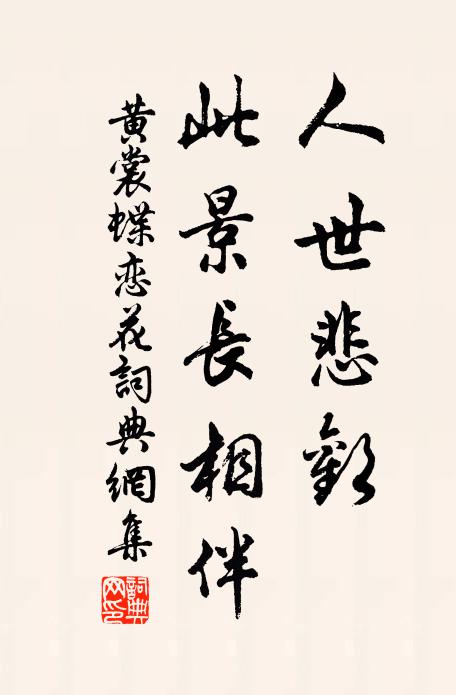 人世悲歡
此景長相伴
黃裳蝶恋花詞典網集
詞典網印